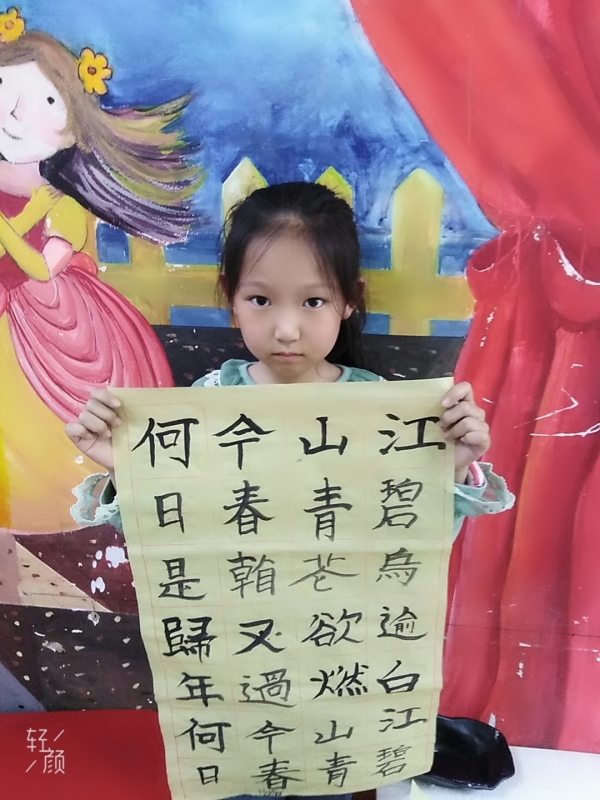 江碧烏逾白江碧
山青花欲燃山青
今春又過今春
何日是歸年何日
轻颜